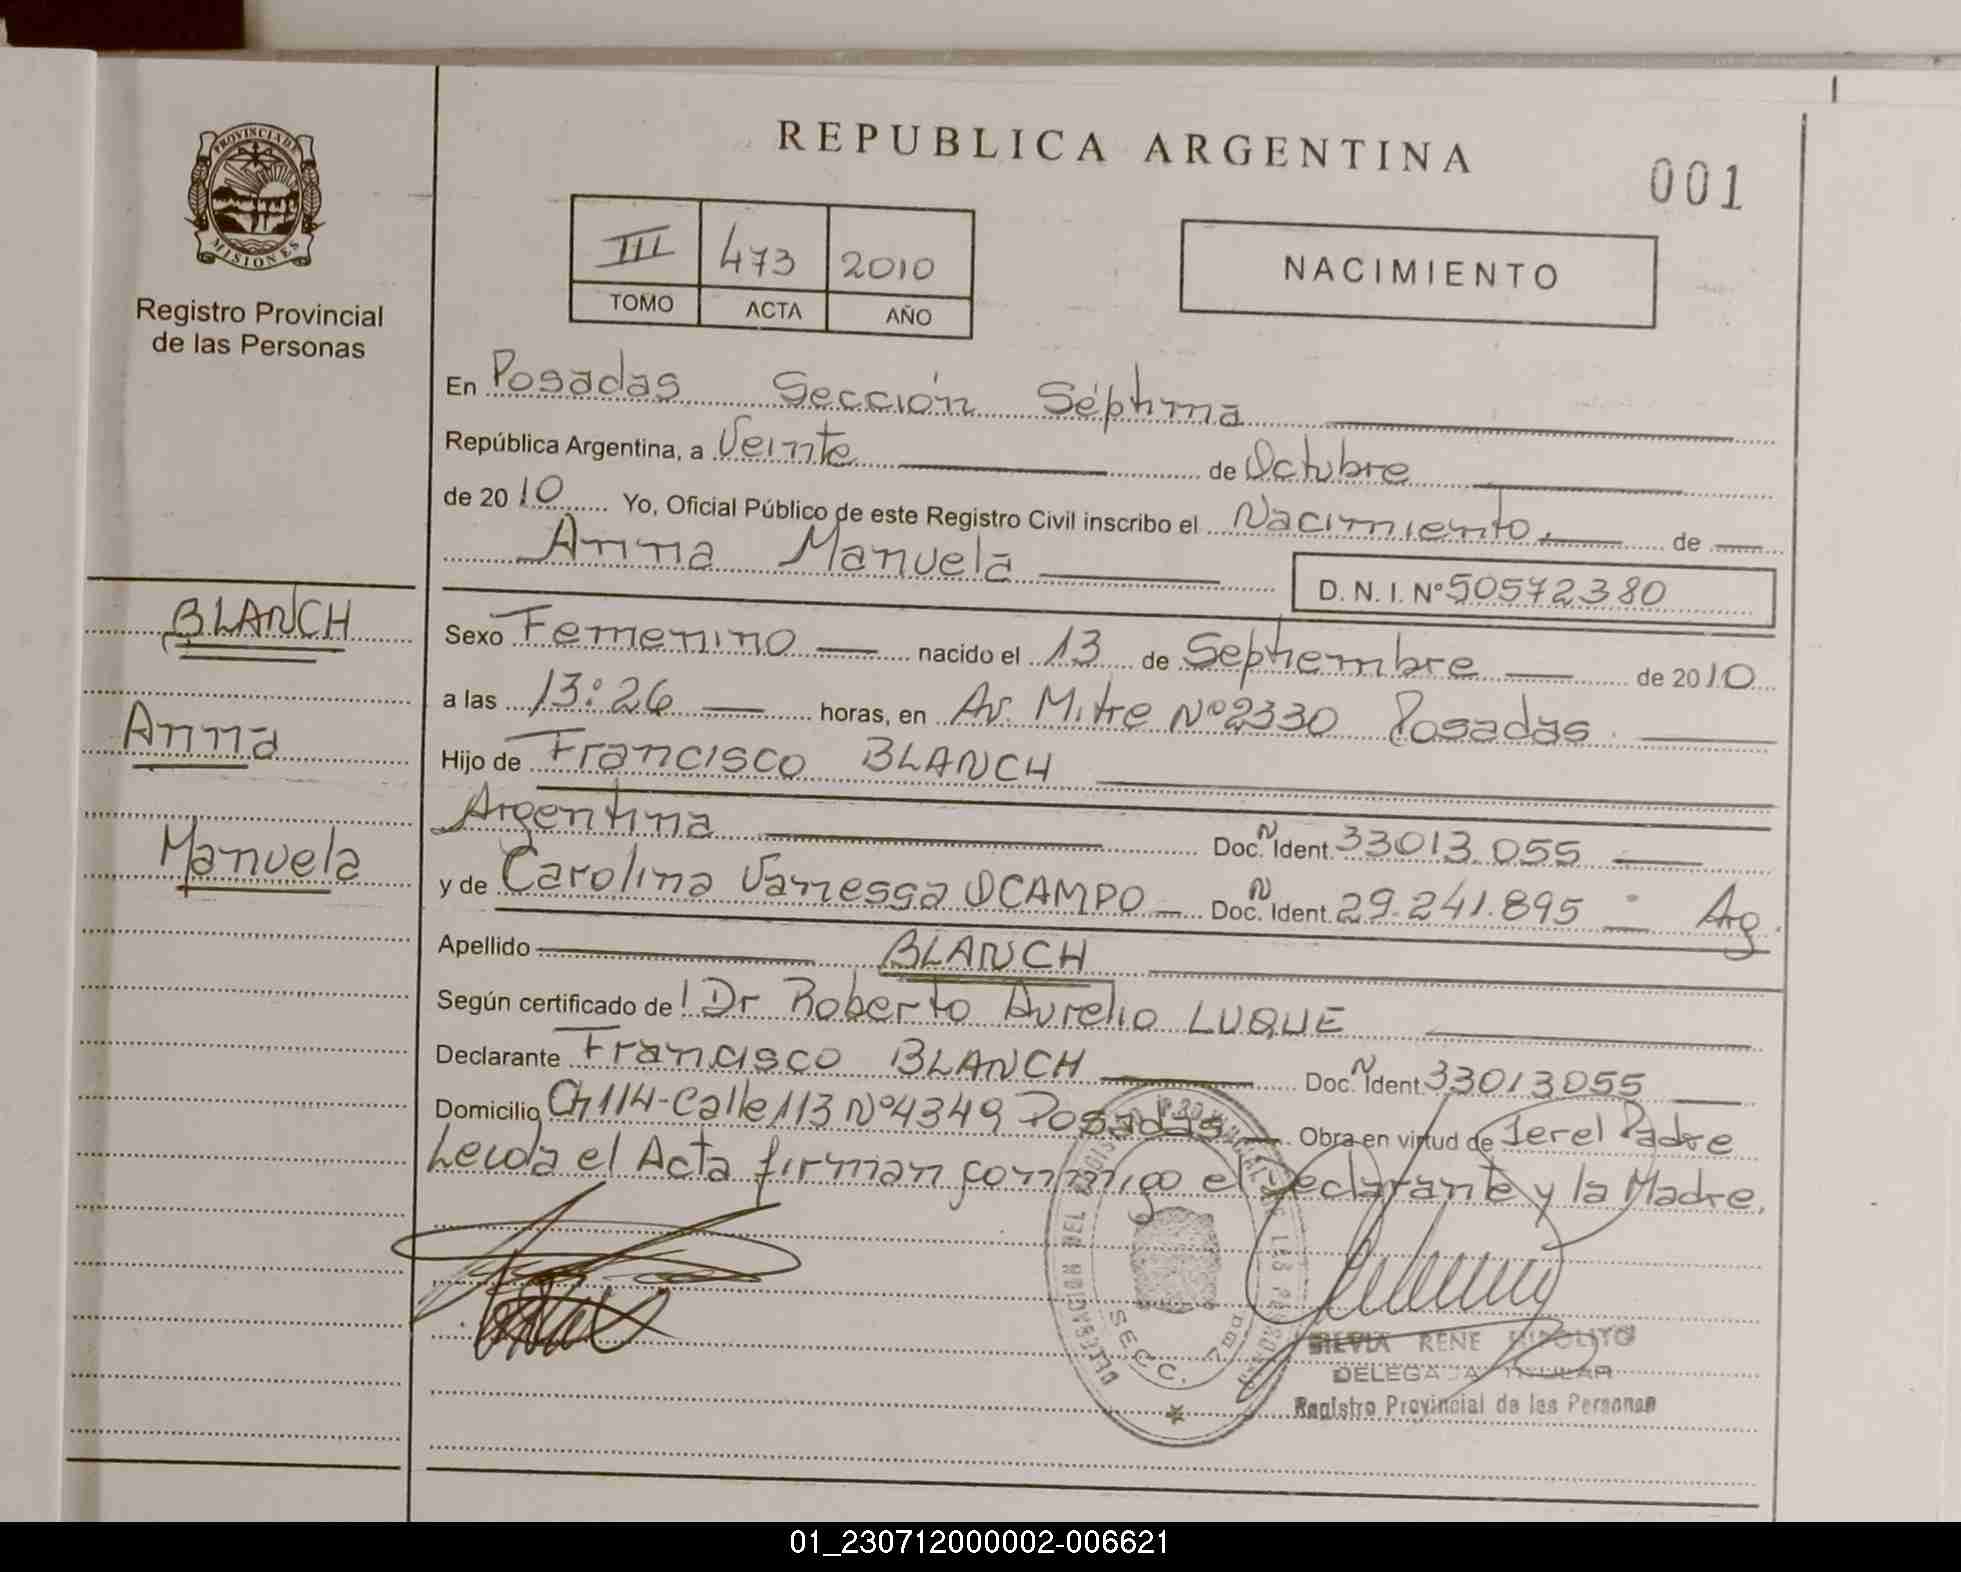 PROVINCIA DE
MISIONES
Registro Provincial
de las Personas
REPUBLICA ARGENTINA
001
III 473 2010
TOMO ACTA AÑO
NACIMIENTO
En Posadas Sección Séptima
República Argentina, a Veinte de Octubre
de 2010 Yo, Oficial Público de este Registro Civil inscribo el Nacimiento, de
Anna Manuela
D. N. I. Nº 50572380
BLANCH
Anna
Manuela
Sexo Femenino nacido el 13 de Septiembre de 2010
a las 13:26 horas, en Av. Mitre Nº 2330 Posadas
Hijo de Francisco BLANCH
Argentina Doc. N Ident. 33013.055
y de Carolina Vanessa OCAMPO Doc. N Ident. 29.241.895 Arg.
Apellido BLANCH
Según certificado de Dr Roberto Aurelio LUQUE
Declarante Francisco BLANCH Doc. N Ident. 33013055
Domicilio Ch 114-Calle 113 Nº 4349 Posadas Obra en virtud de Ser el Padre
Leida el Acta firman conmigo el Declarante y la Madre.
DELEGACION DEL REGISTRO PROVINCIAL DE LAS PERSONAS
SECC. 7
SILVIA RENE HIPOLITO
DELEGADA TITULAR
Registro Provincial de las Personas
01_230712000002-006621